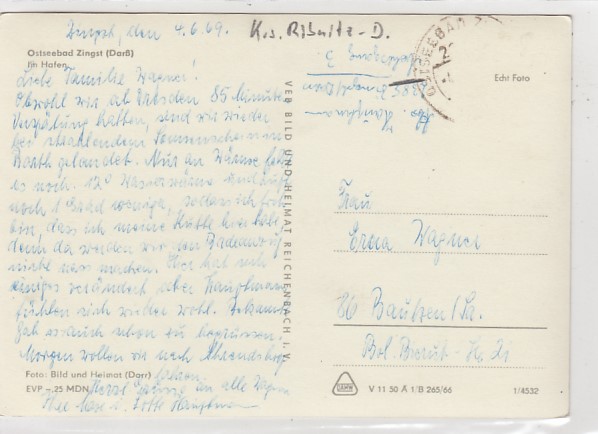 Zingst, den 4.6.69. Krs. Ribnitz-D.
Ostseebad Zingst (Darß)
Im Hafen
Liebe Familie Wagner!
Obwohl wir ab Dresden 85 Minuten
Verspätung hatten, sind wir wieder
bei strahlendem Sonnenschein in
Barth gelandet. Nur an Wärme fehlt
es noch. 12° Wasserwärme und Luft
noch 1 Grad weniger, sodass ich froh
bin, dass ich meine Kutte hier habe,
denn da werden wir den Badeanzug
nicht nass machen. Hier hat sich
einiges verändert aber Hauptmanns
fühlen sich wieder wohl. Bekannte
gab es auch schon zu begrüssen.
Morgen wollen wir nach Ahrenshoop
fahren.
Foto: Bild und Heimat (Darr)
EVP –.25 MDN
Herzl. Grüsse an alle Wagner
Lotte Hauptmann
VEB BILD UND HEIMAT REICHENBACH i. V.
OSTSEEBAD
Echt Foto
Hauptmann
Frau
Erna Wagner
86 Bautzen/Sa.
V 11 50 A 1/B 265/66
1/4532